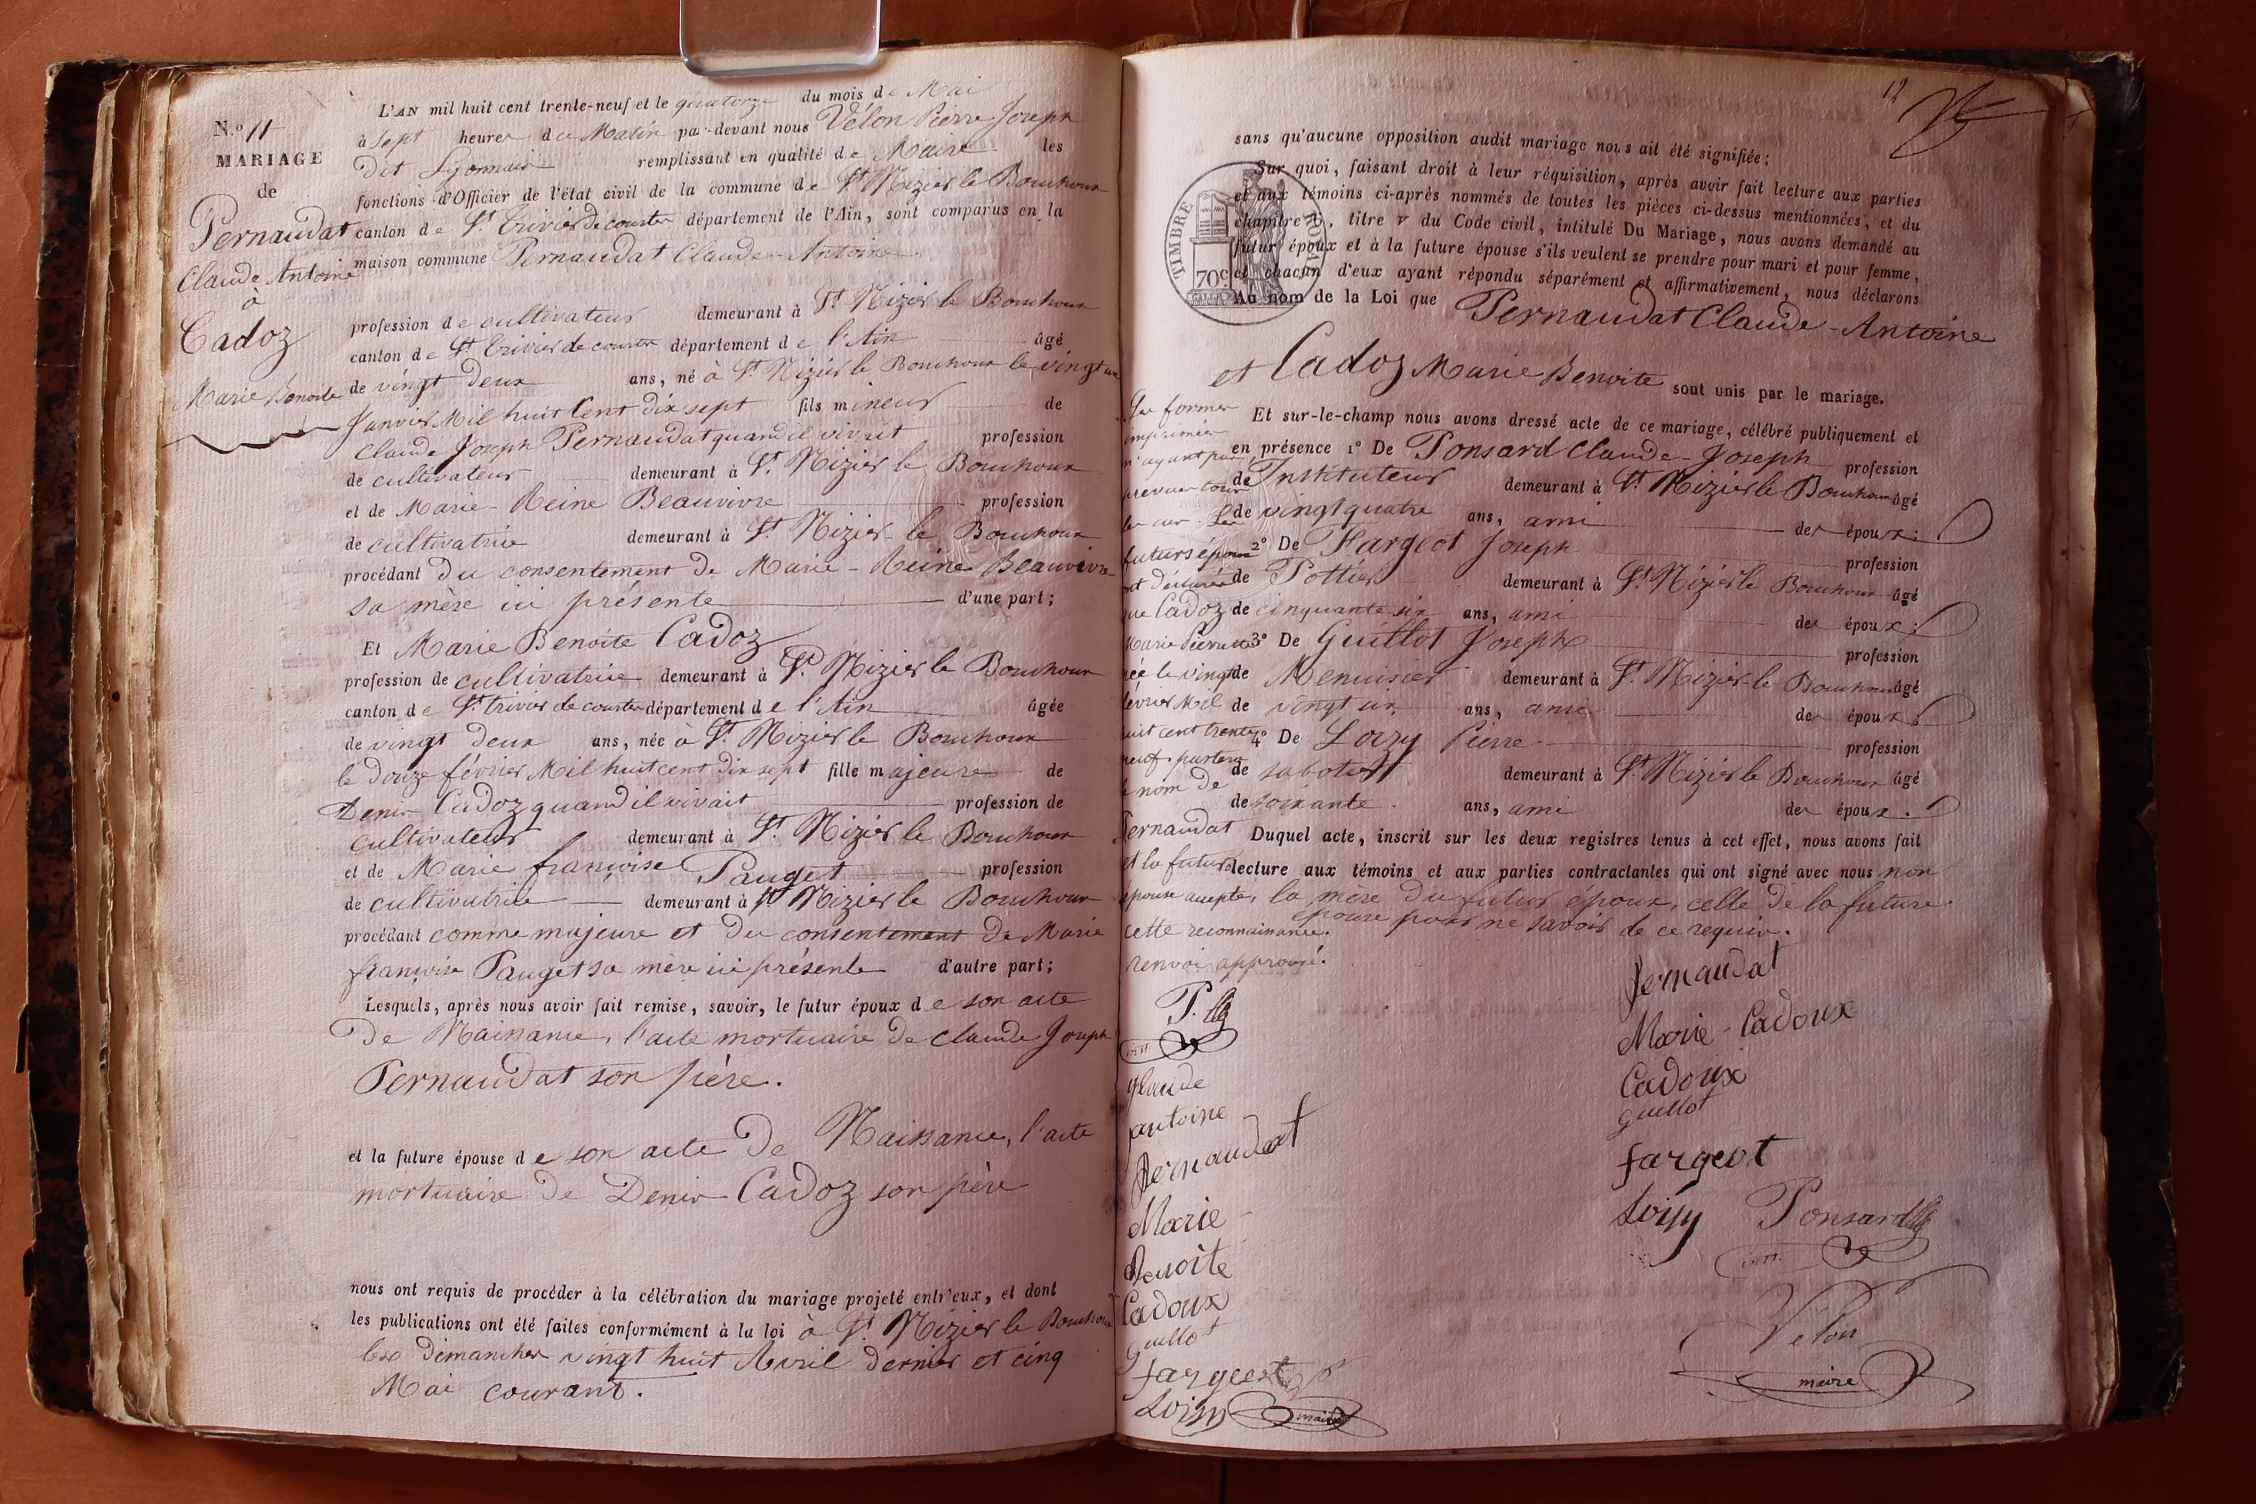 N.º 11
MARIAGE
de
Pernaudat
Claude Antoine
à
Cadoz
Marie Benoite
L'AN mil huit cent trente-neuf et le quatorze du mois de Mai
à sept heures du Matin par-devant nous Vélon Pierre Joseph
dit Lyonnais remplissant en qualité de Maire les
fonctions d'Officier de l'état civil de la commune de St Nizier le Bouchoux
canton de St Trivier de courtes département de l'Ain, sont comparus en la
maison commune Pernaudat Claude-Antoine
profession de cultivateur demeurant à St Nizier le Bouchoux
canton de St Trivier de courtes département de l'Ain âgé
de vingt deux ans, né à St Nizier le Bouchoux le vingt un
Janvier Mil huit Cent dix sept fils mineur de
Claude Joseph Pernaudat quand il vivait profession
de cultivateur demeurant à St Nizier le Bouchoux
et de Marie-Reine Beauvivre profession
de cultivatrice demeurant à St Nizier-le Bouchoux
procédant du consentement de Marie-Reine Beauvivre
sa mère ici présente d'une part;
Et Marie Benoite Cadoz
profession de cultivatrice demeurant à St Nizier le Bouchoux
canton de St Trivier de courtes département de l'Ain âgée
de vingt deux ans, née à St Nizier le Bouchoux
le douze février Mil huit cent dix sept fille majeure de
Denis Cadoz quand il vivait profession de
cultivateur demeurant à St Nizier le Bouchoux
et de Marie françoise Pauget profession
de cultivatrice demeurant à St Nizier le Bouchoux
procédant comme majeure et du consentement de Marie
françoise Pauget sa mère ici présente d'autre part;
Lesquels, après nous avoir fait remise, savoir, le futur époux de son acte
de Naissance, l'acte mortuaire de Claude Joseph
Pernaudat son père.
et la future épouse de son acte de Naissance, l'acte
mortuaire de Denis Cadoz son père
nous ont requis de procéder à la célébration du mariage projeté entr'eux, et dont
les publications ont été faites conformément à la loi à St Nizier le Bouchoux
les dimanches vingt huit Avril dernier et cinq
Mai courant.
12
sans qu'aucune opposition audit mariage nous ait été signifiée;
Sur quoi, faisant droit à leur réquisition, après avoir fait lecture aux parties
et aux témoins ci-après nommés de toutes les pièces ci-dessus mentionnées, et du
chapitre , titre v du Code civil, intitulé Du Mariage, nous avons demandé au
futur époux et à la future épouse s'ils veulent se prendre pour mari et pour femme,
et chacun d'eux ayant répondu séparément et affirmativement, nous déclarons
Au nom de la Loi que Pernaudat Claude-Antoine
et Cadoz Marie Benoite sont unis par le mariage.
TIMBRE ROYAL
70c
Et sur-le-champ nous avons dressé acte de ce mariage, célébré publiquement et
en présence 1º De Ponsard Claude-Joseph profession
de Instituteur demeurant à St Nizier le Bouchoux âgé
de vingt quatre ans, ami des époux;
2º De Fargeot Joseph profession
de Pottier demeurant à St Nizier le Bouchoux âgé
de cinquante six ans, ami des époux;
3º De Guillot Joseph profession
de Menuisier demeurant à St Nizier-le Bouchoux âgé
de vingt six ans, ami des époux;
4º De Loizy Pierre profession
de sabotier demeurant à St Nizier le Bouchoux âgé
de soixante ans, ami des époux.
Duquel acte, inscrit sur les deux registres tenus à cet effet, nous avons fait
lecture aux témoins et aux parties contractantes qui ont signé avec nous non
la mère du futur époux, celle de la future
épouse pour ne savoir de ce requis.
Les formes
imprimées
n'ayant pas
prévu tous
les cas. Les
futurs époux
ont déclaré
que Cadoz
Marie Pierrette
née le vingt
février Mil
huit cent trente
neuf. portera
le nom de
Pernaudat
et la future
épouse accepte,
cette reconnaissance.
renvoi approuvé.
P.
inst.
Glaude
antoine
Pernaudat
Marie
Benoite
Cadoux
guillot
fargeot
Loisy
maire
Pernaudat
Marie-Cadoux
Cadoux
guillot
fargeot
Loisy Ponsard
inst.
Velon
maire